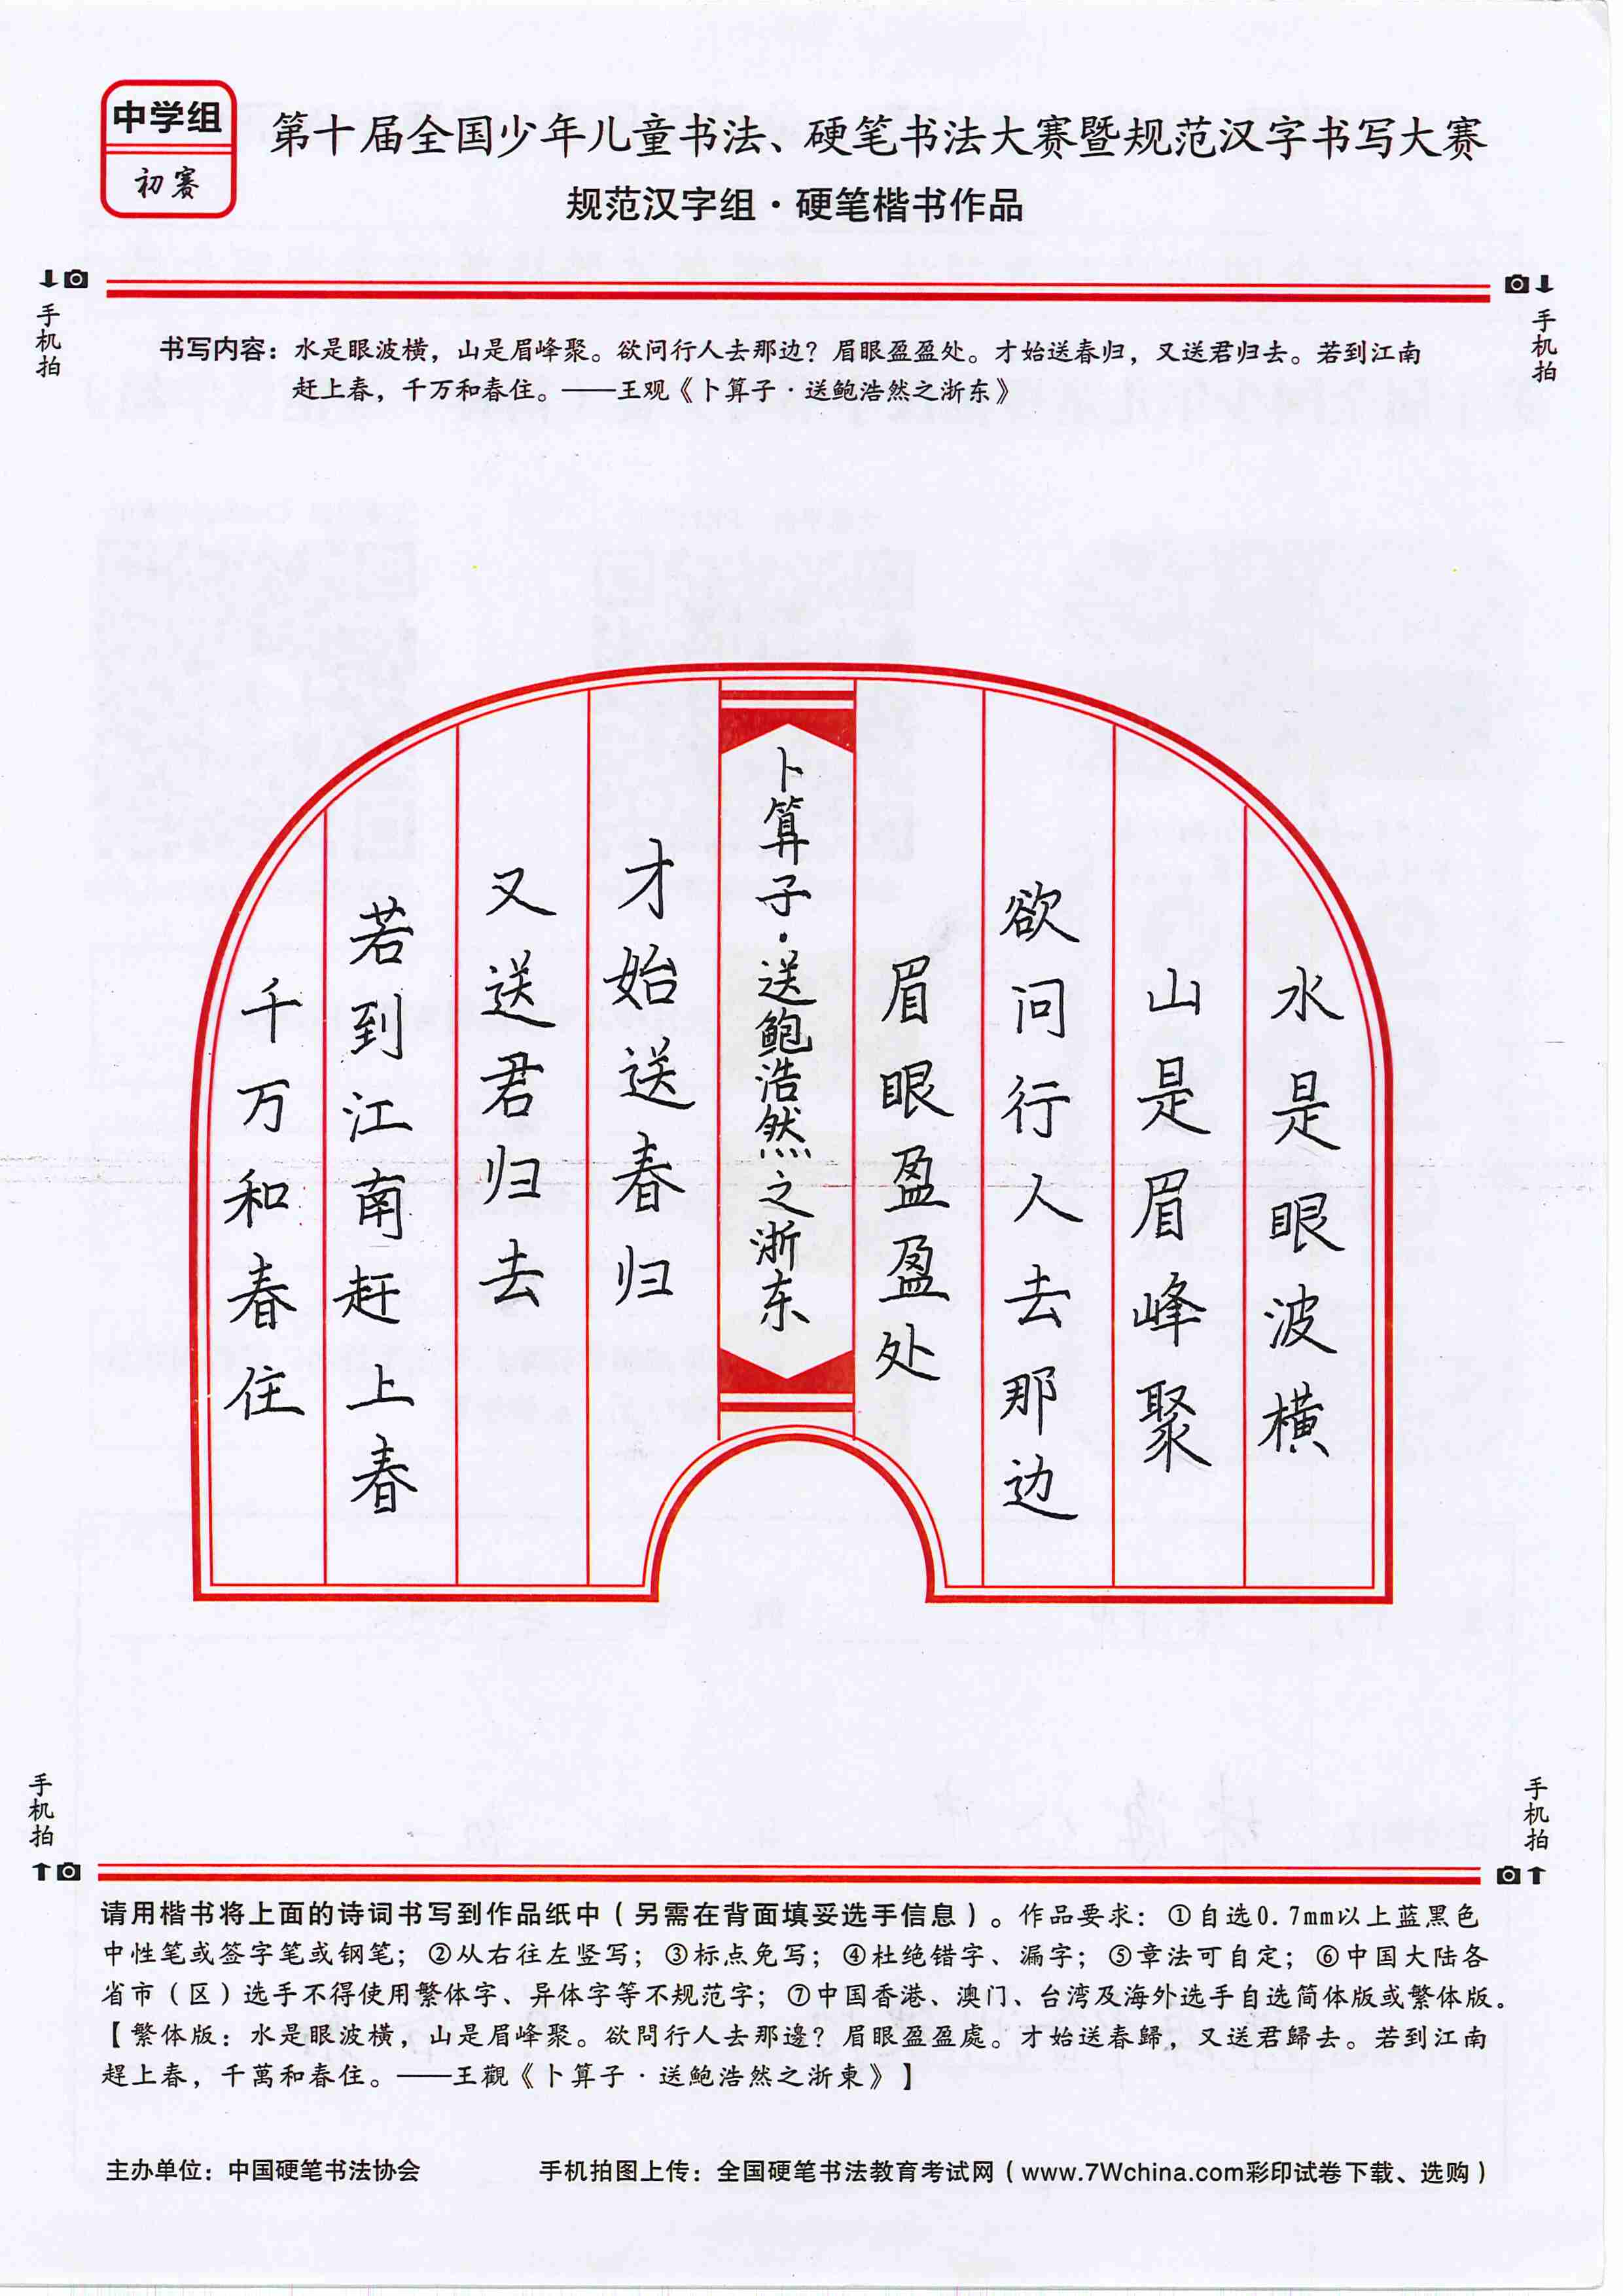 中学组
初赛
第十届全国少年儿童书法、硬笔书法大赛暨规范汉字书写大赛
规范汉字组·硬笔楷书作品
手机拍
手机拍
书写内容：水是眼波横，山是眉峰聚。欲问行人去那边？眉眼盈盈处。才始送春归，又送君归去。若到江南
赶上春，千万和春住。——王观《卜算子·送鲍浩然之浙东》
水是眼波横
山是眉峰聚
欲问行人去那边
眉眼盈盈处
卜算子·送鲍浩然之浙东
才始送春归
又送君归去
若到江南赶上春
千万和春住
手机拍
手机拍
请用楷书将上面的诗词书写到作品纸中（另需在背面填妥选手信息）。作品要求：①自选0.7mm以上蓝黑色
中性笔或签字笔或钢笔；②从右往左竖写；③标点免写；④杜绝错字、漏字；⑤章法可自定；⑥中国大陆各
省市（区）选手不得使用繁体字、异体字等不规范字；⑦中国香港、澳门、台湾及海外选手自选简体版或繁体版。
【繁体版：水是眼波橫，山是眉峰聚。欲問行人去那邊？眉眼盈盈處。才始送春歸，又送君歸去。若到江南
趕上春，千萬和春住。——王觀《卜算子·送鮑浩然之浙東》】
主办单位：中国硬笔书法协会
手机拍图上传：全国硬笔书法教育考试网（www.7Wchina.com彩印试卷下载、选购）